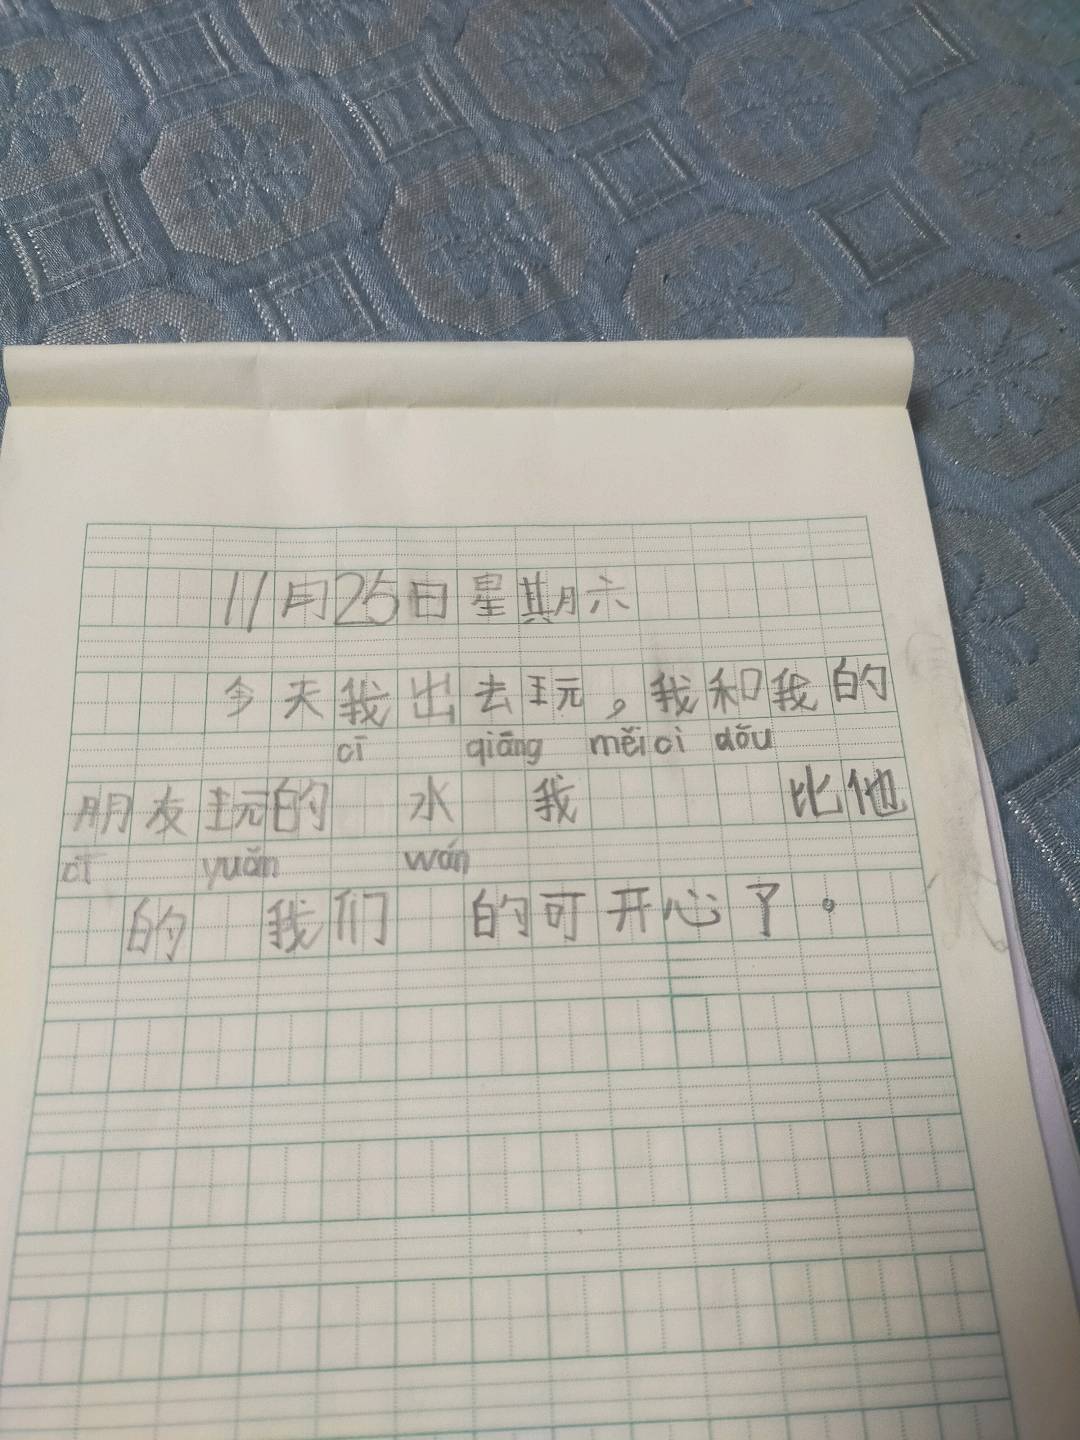 11月25日星期六
今天我出去玩，我和我的
cī qiāng měi cì dǒu
朋友玩的 水 我 比他
cī yuǎn wán
的 我们 的可开心了。